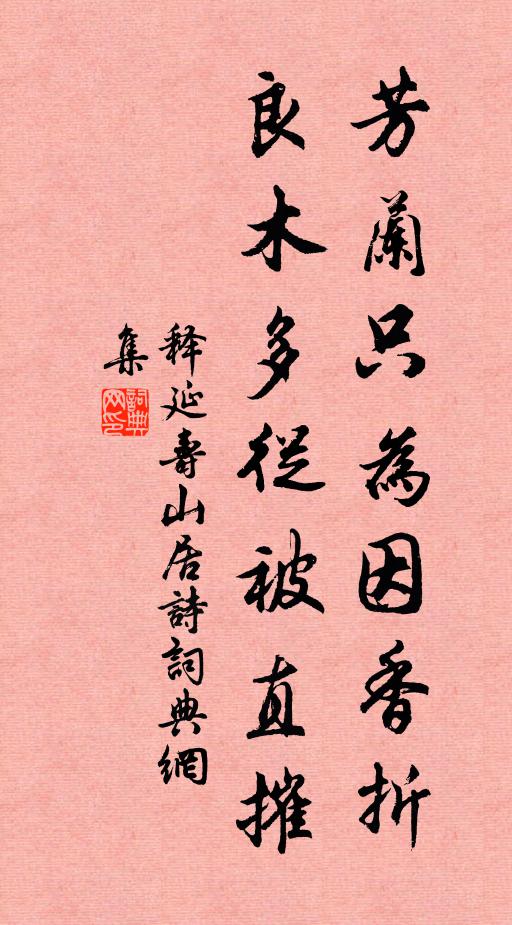 芳蘭只為因香折
良木多從被直摧
释延壽山居詩詞典網
集
詞典網印